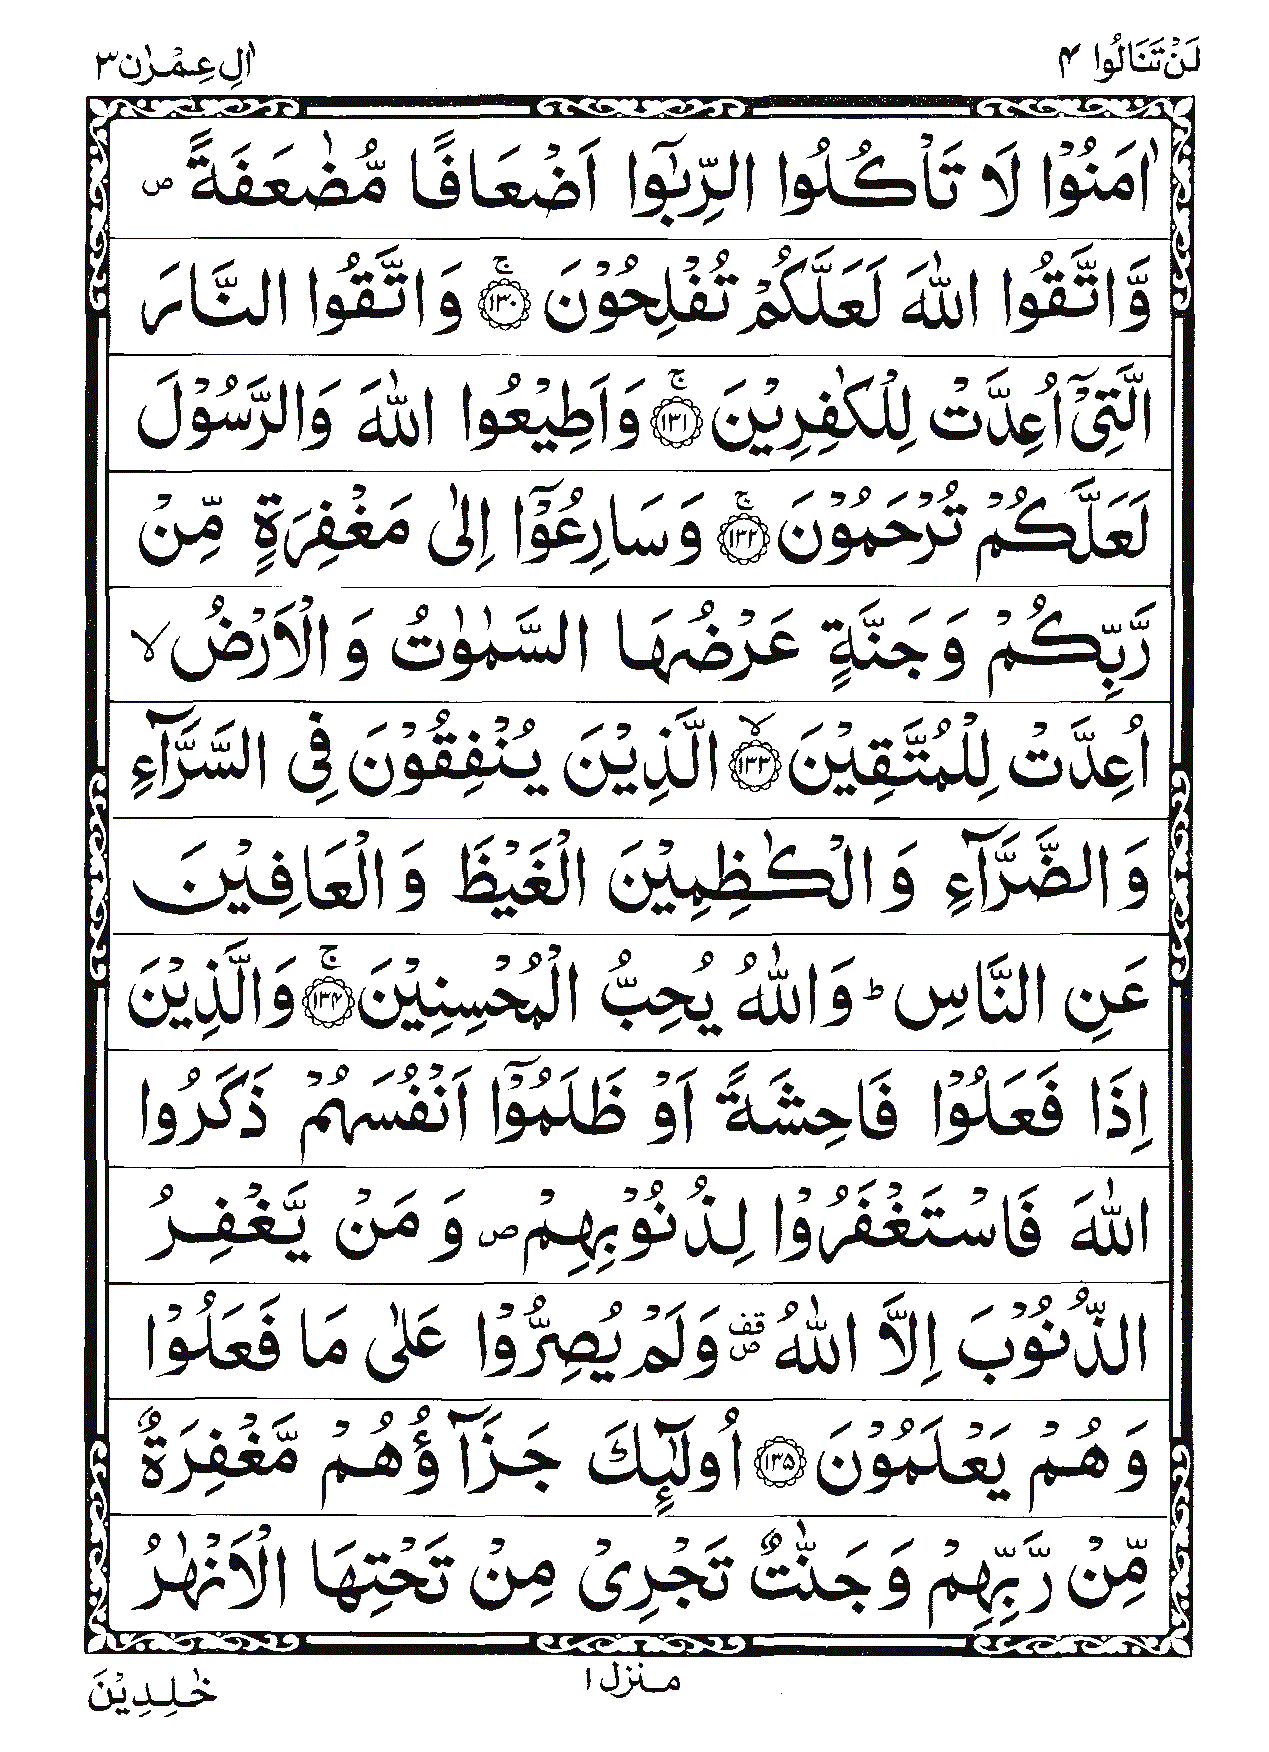 لَنْ تَنَالُوا ۴ اٰلِ عِمْرٰن ۳
اٰمَنُوْا لَا تَاْكُلُوا الرِّبٰٓوا اَضْعَافًا مُّضٰعَفَةً ص
وَّاتَّقُوا اللّٰهَ لَعَلَّكُمْ تُفْلِحُوْنَ ۚ‏﴿۱۳۰﴾ وَاتَّقُوا النَّارَ
الَّتِىْۤ اُعِدَّتْ لِلْكٰفِرِيْنَ ۚ‏﴿۱۳۱﴾ وَاَطِيْعُوا اللّٰهَ وَالرَّسُوْلَ
لَعَلَّكُمْ تُرْحَمُوْنَ ۚ‏﴿۱۳۲﴾ وَسَارِعُوْۤا اِلٰى مَغْفِرَةٍ مِّنْ
رَّبِّكُمْ وَجَنَّةٍ عَرْضُهَا السَّمٰوٰتُ وَالْاَرْضُ ۙ
اُعِدَّتْ لِلْمُتَّقِيْنَ ۙ‏﴿۱۳۳﴾ الَّذِيْنَ يُنْفِقُوْنَ فِى السَّرَّآءِ
وَالضَّرَّآءِ وَالْكٰظِمِيْنَ الْغَيْظَ وَالْعَافِيْنَ
عَنِ النَّاسِ ؕ وَاللّٰهُ يُحِبُّ الْمُحْسِنِيْنَ ۚ‏﴿۱۳۴﴾ وَالَّذِيْنَ
اِذَا فَعَلُوْا فَاحِشَةً اَوْ ظَلَمُوْۤا اَنْفُسَهُمْ ذَكَرُوا
اللّٰهَ فَاسْتَغْفَرُوْا لِذُنُوْبِهِمْ ص وَمَنْ يَّغْفِرُ
الذُّنُوْبَ اِلَّا اللّٰهُ قف ص وَلَمْ يُصِرُّوْا عَلٰى مَا فَعَلُوْا
وَهُمْ يَعْلَمُوْنَ ﴿۱۳۵﴾ اُولٰٓئِكَ جَزَآؤُهُمْ مَّغْفِرَةٌ
مِّنْ رَّبِّهِمْ وَجَنّٰتٌ تَجْرِىْ مِنْ تَحْتِهَا الْاَنْهٰرُ
منزل ۱
خٰلِدِيْنَ